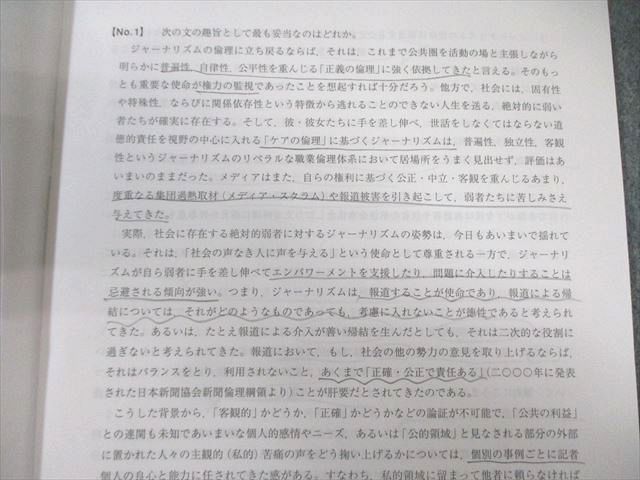 【No.1】 次の文の趣旨として最も妥当なのはどれか。
ジャーナリズムの倫理に立ち戻るならば、それは、これまで公共圏を活動の場と主張しながら
明らかに普遍性、自律性、公平性を重んじる「正義の倫理」に強く依拠してきたと言える。そのもっ
とも重要な使命が権力の監視であったことを想起すれば十分だろう。他方で、社会には、固有性
や特殊性、ならびに関係依存性という特徴から逃れることのできない人生を送る、絶対的に弱い
者たちが確実に存在する。そして、彼・彼女たちに手を差し伸べ、世話をしなくてはならない道
徳的責任を視野の中心に入れる「ケアの倫理」に基づくジャーナリズムは、普遍性、独立性、客観
性というジャーナリズムのリベラルな職業倫理体系において居場所をうまく見出せず、評価はあ
いまいのままだった。メディアはまた、自らの権利に基づく公正・中立・客観を重んじるあまり、
度重なる集団過熱取材（メディア・スクラム）や報道被害を引き起こして、弱者たちに苦しみさえ
与えてきた。
実際、社会に存在する絶対的弱者に対するジャーナリズムの姿勢は、今日もあいまいで揺れて
いる。それは、「社会の声なき人に声を与える」という使命として尊重される一方で、ジャーナリ
ズムが自ら弱者に手を差し伸べてエンパワーメントを支援したり、問題に介入したりすることは
忌避される傾向が強い。つまり、ジャーナリズムは、報道することが使命であり、報道による帰
結については、それがどのようなものであっても、考慮に入れないことが徳性であると考えられ
てきた。あるいは、たとえ報道による介入が善い帰結を生んだとしても、それは二次的な役割に
過ぎないと考えられてきた。報道において、もし、社会の他の勢力の意見を取り上げるならば、
それはバランスをとり、利用されないこと、あくまで「正確・公正で責任ある」（二〇〇〇年に発表
された日本新聞協会新聞倫理綱領より）ことが肝要だとされてきたのである。
こうした背景から、「客観的」かどうか、「正確」かどうかなどの論証が不可能で、「公共の利益」
との連関も未知であいまいな個人的感情やニーズ、あるいは「公的領域」と見なされる部分の外部
に置かれた人々の主観的（私的）苦痛の声をどう掬い上げるかについては、個別の事例ごとに記者
個人の良心と能力に任されてきた感がある。すなわち、私的領域に留まって他者に頼らなければ